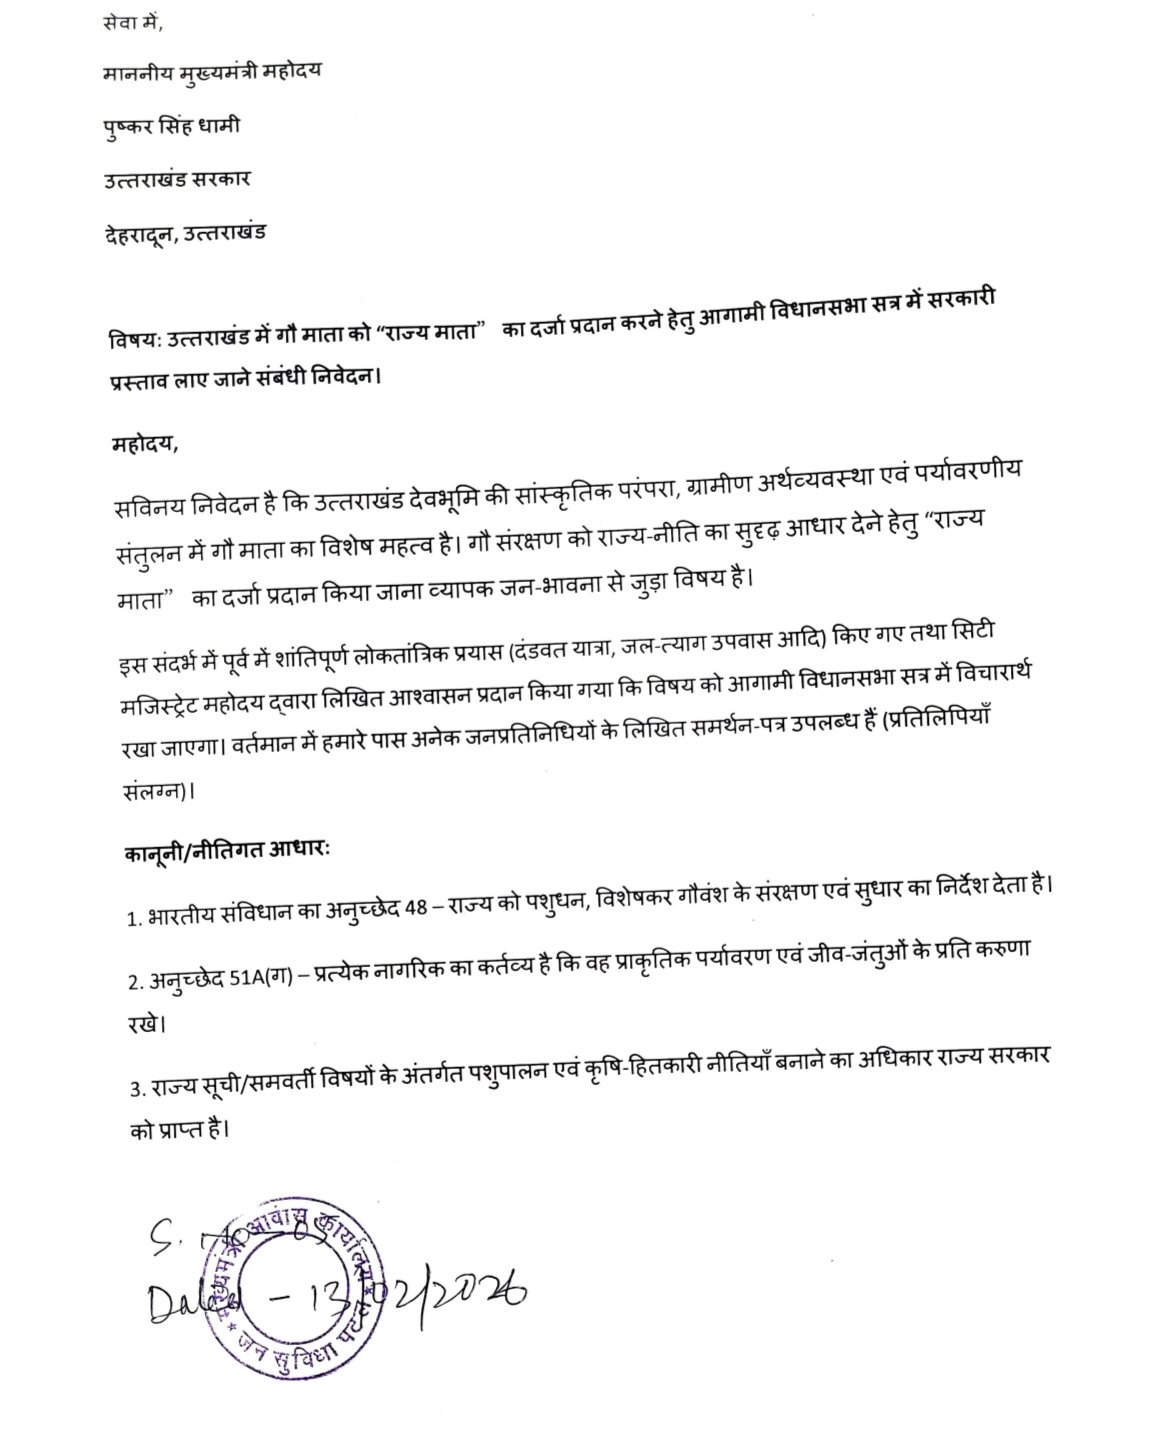 सेवा में,
माननीय मुख्यमंत्री महोदय
पुष्कर सिंह धामी
उत्तराखंड सरकार
देहरादून, उत्तराखंड
विषय: उत्तराखंड में गौ माता को “राज्य माता” का दर्जा प्रदान करने हेतु आगामी विधानसभा सत्र में सरकारी
प्रस्ताव लाए जाने संबंधी निवेदन।
महोदय,
सविनय निवेदन है कि उत्तराखंड देवभूमि की सांस्कृतिक परंपरा, ग्रामीण अर्थव्यवस्था एवं पर्यावरणीय
संतुलन में गौ माता का विशेष महत्व है। गौ संरक्षण को राज्य-नीति का सुदृढ़ आधार देने हेतु “राज्य
माता” का दर्जा प्रदान किया जाना व्यापक जन-भावना से जुड़ा विषय है।
इस संदर्भ में पूर्व में शांतिपूर्ण लोकतांत्रिक प्रयास (दंडवत यात्रा, जल-त्याग उपवास आदि) किए गए तथा सिटी
मजिस्ट्रेट महोदय द्वारा लिखित आश्वासन प्रदान किया गया कि विषय को आगामी विधानसभा सत्र में विचारार्थ
रखा जाएगा। वर्तमान में हमारे पास अनेक जनप्रतिनिधियों के लिखित समर्थन-पत्र उपलब्ध हैं (प्रतिलिपियाँ
संलग्न)।
कानूनी/नीतिगत आधार:
1. भारतीय संविधान का अनुच्छेद 48 – राज्य को पशुधन, विशेषकर गौवंश के संरक्षण एवं सुधार का निर्देश देता है।
2. अनुच्छेद 51A(ग) – प्रत्येक नागरिक का कर्तव्य है कि वह प्राकृतिक पर्यावरण एवं जीव-जंतुओं के प्रति करुणा
रखे।
3. राज्य सूची/समवर्ती विषयों के अंतर्गत पशुपालन एवं कृषि-हितकारी नीतियाँ बनाने का अधिकार राज्य सरकार
को प्राप्त है।
S.
मुख्यमंत्री आवास कार्यालय
Dated - 13/02/2026
★ जन सुविधा पटल ★